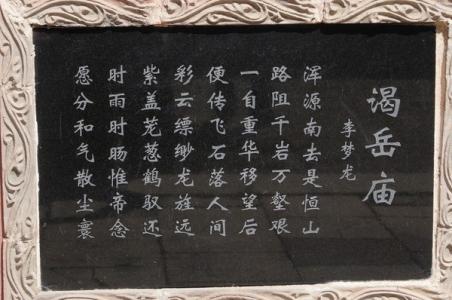 谒岳庙
李梦龙
浑源南去是恒山
路阻千岩万壑艰
一自重华移望后
便传飞石落人间
彩云缥缈龙旌远
紫盖茏葱鹤驭还
时雨时旸惟帝念
愿分和气散尘寰